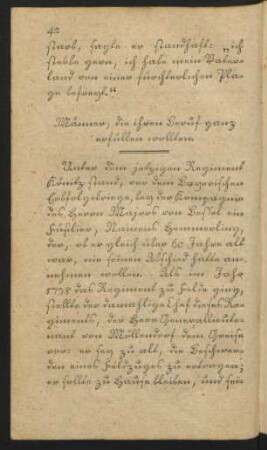 42
starb, sagte er standhaft: „ich
sterbe gern, ich habe mein Vater-
land von einer fürchterlichen Pla-
ge befreyt.“
Männer, die ihren Beruf ganz
erfüllen wollten.
Unter dem jetzigen Regiment
Könitz stand, vor dem Bayerischen
Erbfolgekriege, bey der Kompagnie
des Herrn Majors von
Füsilier, Namens Hemmerling,
der, ob er gleich über 60 Jahre alt
war, nie seinen Abschied hatte an-
nehmen wollen. Als im Jahr
1778 das Regiment zu Felde ging,
stellte der damahlige Chef dieses Re-
giments, der Herr Generallieute-
nant von Möllendorf dem Greise
vor: er sey zu alt, die Beschwer-
den eines Feldzuges zu ertragen;
er sollte zu Hause bleiben, und sein